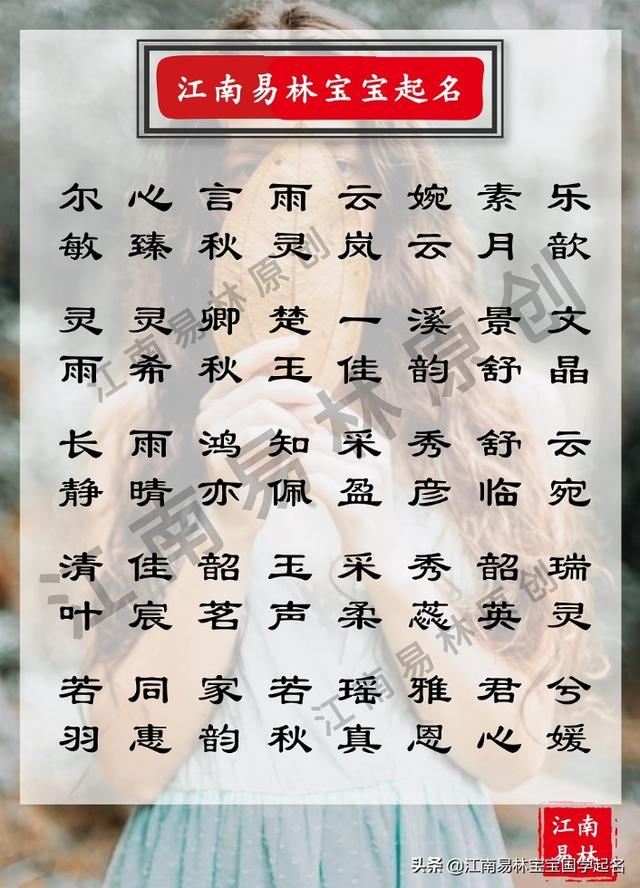 江南易林宝宝起名
尔 心 言 雨 云 婉 素 乐
敏 臻 秋 灵 岚 云 月 歆
灵 灵 卿 楚 一 溪 景 文
雨 希 秋 玉 佳 韵 舒 晶
长 雨 鸿 知 采 秀 舒 云
静 晴 亦 佩 盈 彦 临 宛
清 佳 韶 玉 采 秀 韶 瑞
叶 宸 茗 声 柔 蕊 英 灵
若 同 家 若 瑶 雅 君 兮
羽 惠 韵 秋 真 恩 心 媛
江南易林原创
江南易林原创
江南易林原创
江南
易林
头条 @江南易林宝宝国学起名